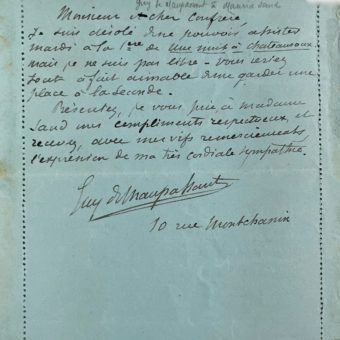 Guy de Maupassant à Maurice Sand
Monsieur et cher confrère
Je suis désolé de ne pouvoir assister
mardi à la 1ère de Une nuit à chateauroux
mais je ne suis pas libre - vous seriez
tout à fait aimable de me garder une
place à la seconde.
Présentez, je vous prie, à madame
Sand mes compliments respectueux, et
recevez, avec mes vifs remerciements,
l'expression de ma très cordiale sympathie.
Guy de Maupassant
10 rue Montchanin